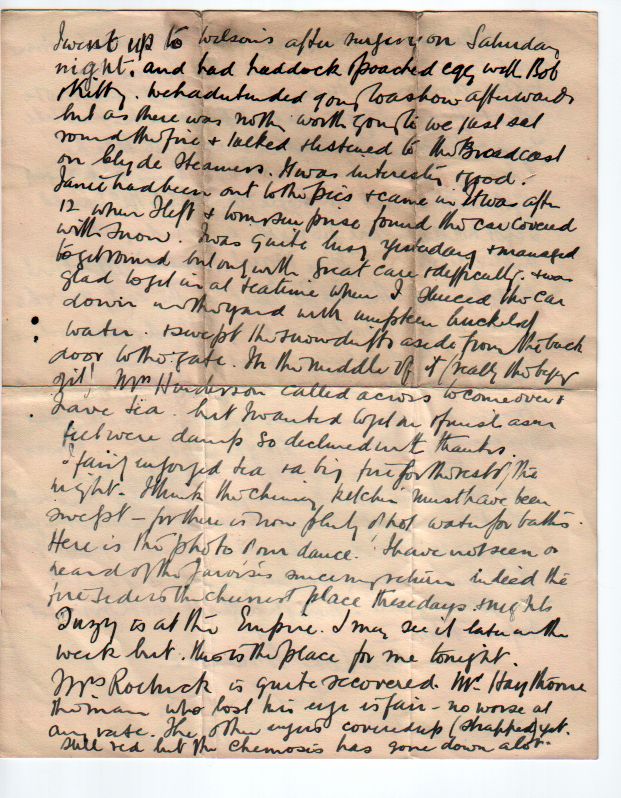 I went up to Wilson's after surgery on Saturday
night, and had haddock & poached egg with Bob
& Kitty. We had intended going to a show afterwards
but as there was nothing worth going to we just sat
round the fire & talked & listened to the Broadcast
on Clyde Steamers. It was interesting & good.
Janet had been out to the pics & came in. It was after
12 when I left & to my surprise found the car covered
with snow. I was quite busy yesterday & managed
to get round but only with great care & difficulty. & was
glad to get in at teatime when I sluiced the car
down in the yard with umpteen buckets of
water. & swept the snowdrifts aside from the back
door to the gate. In the middle of it (really the
Mrs Henderson called across to come over &
have tea. but I wanted to get as my
feet were damp so declined with thanks.
I fairly enjoyed tea & a big fire for the rest of the
night. I think the chimney must have been
swept – for there is now plenty of hot water for baths.
Here is the photo of our dance. I have not seen or
heard of the Jarvises since my return indeed the
fireside is the cheeriest place these days & nights
is at the Empire. I may see it later in the
week but. this is the place for me tonight.
Mrs Roebuck is quite recovered. Mr Haythorne
the man who lost his eye is fair – no worse at
any rate. The other eye is covered up (strapped) yet.
still red but the chemosis has gone down a lot.